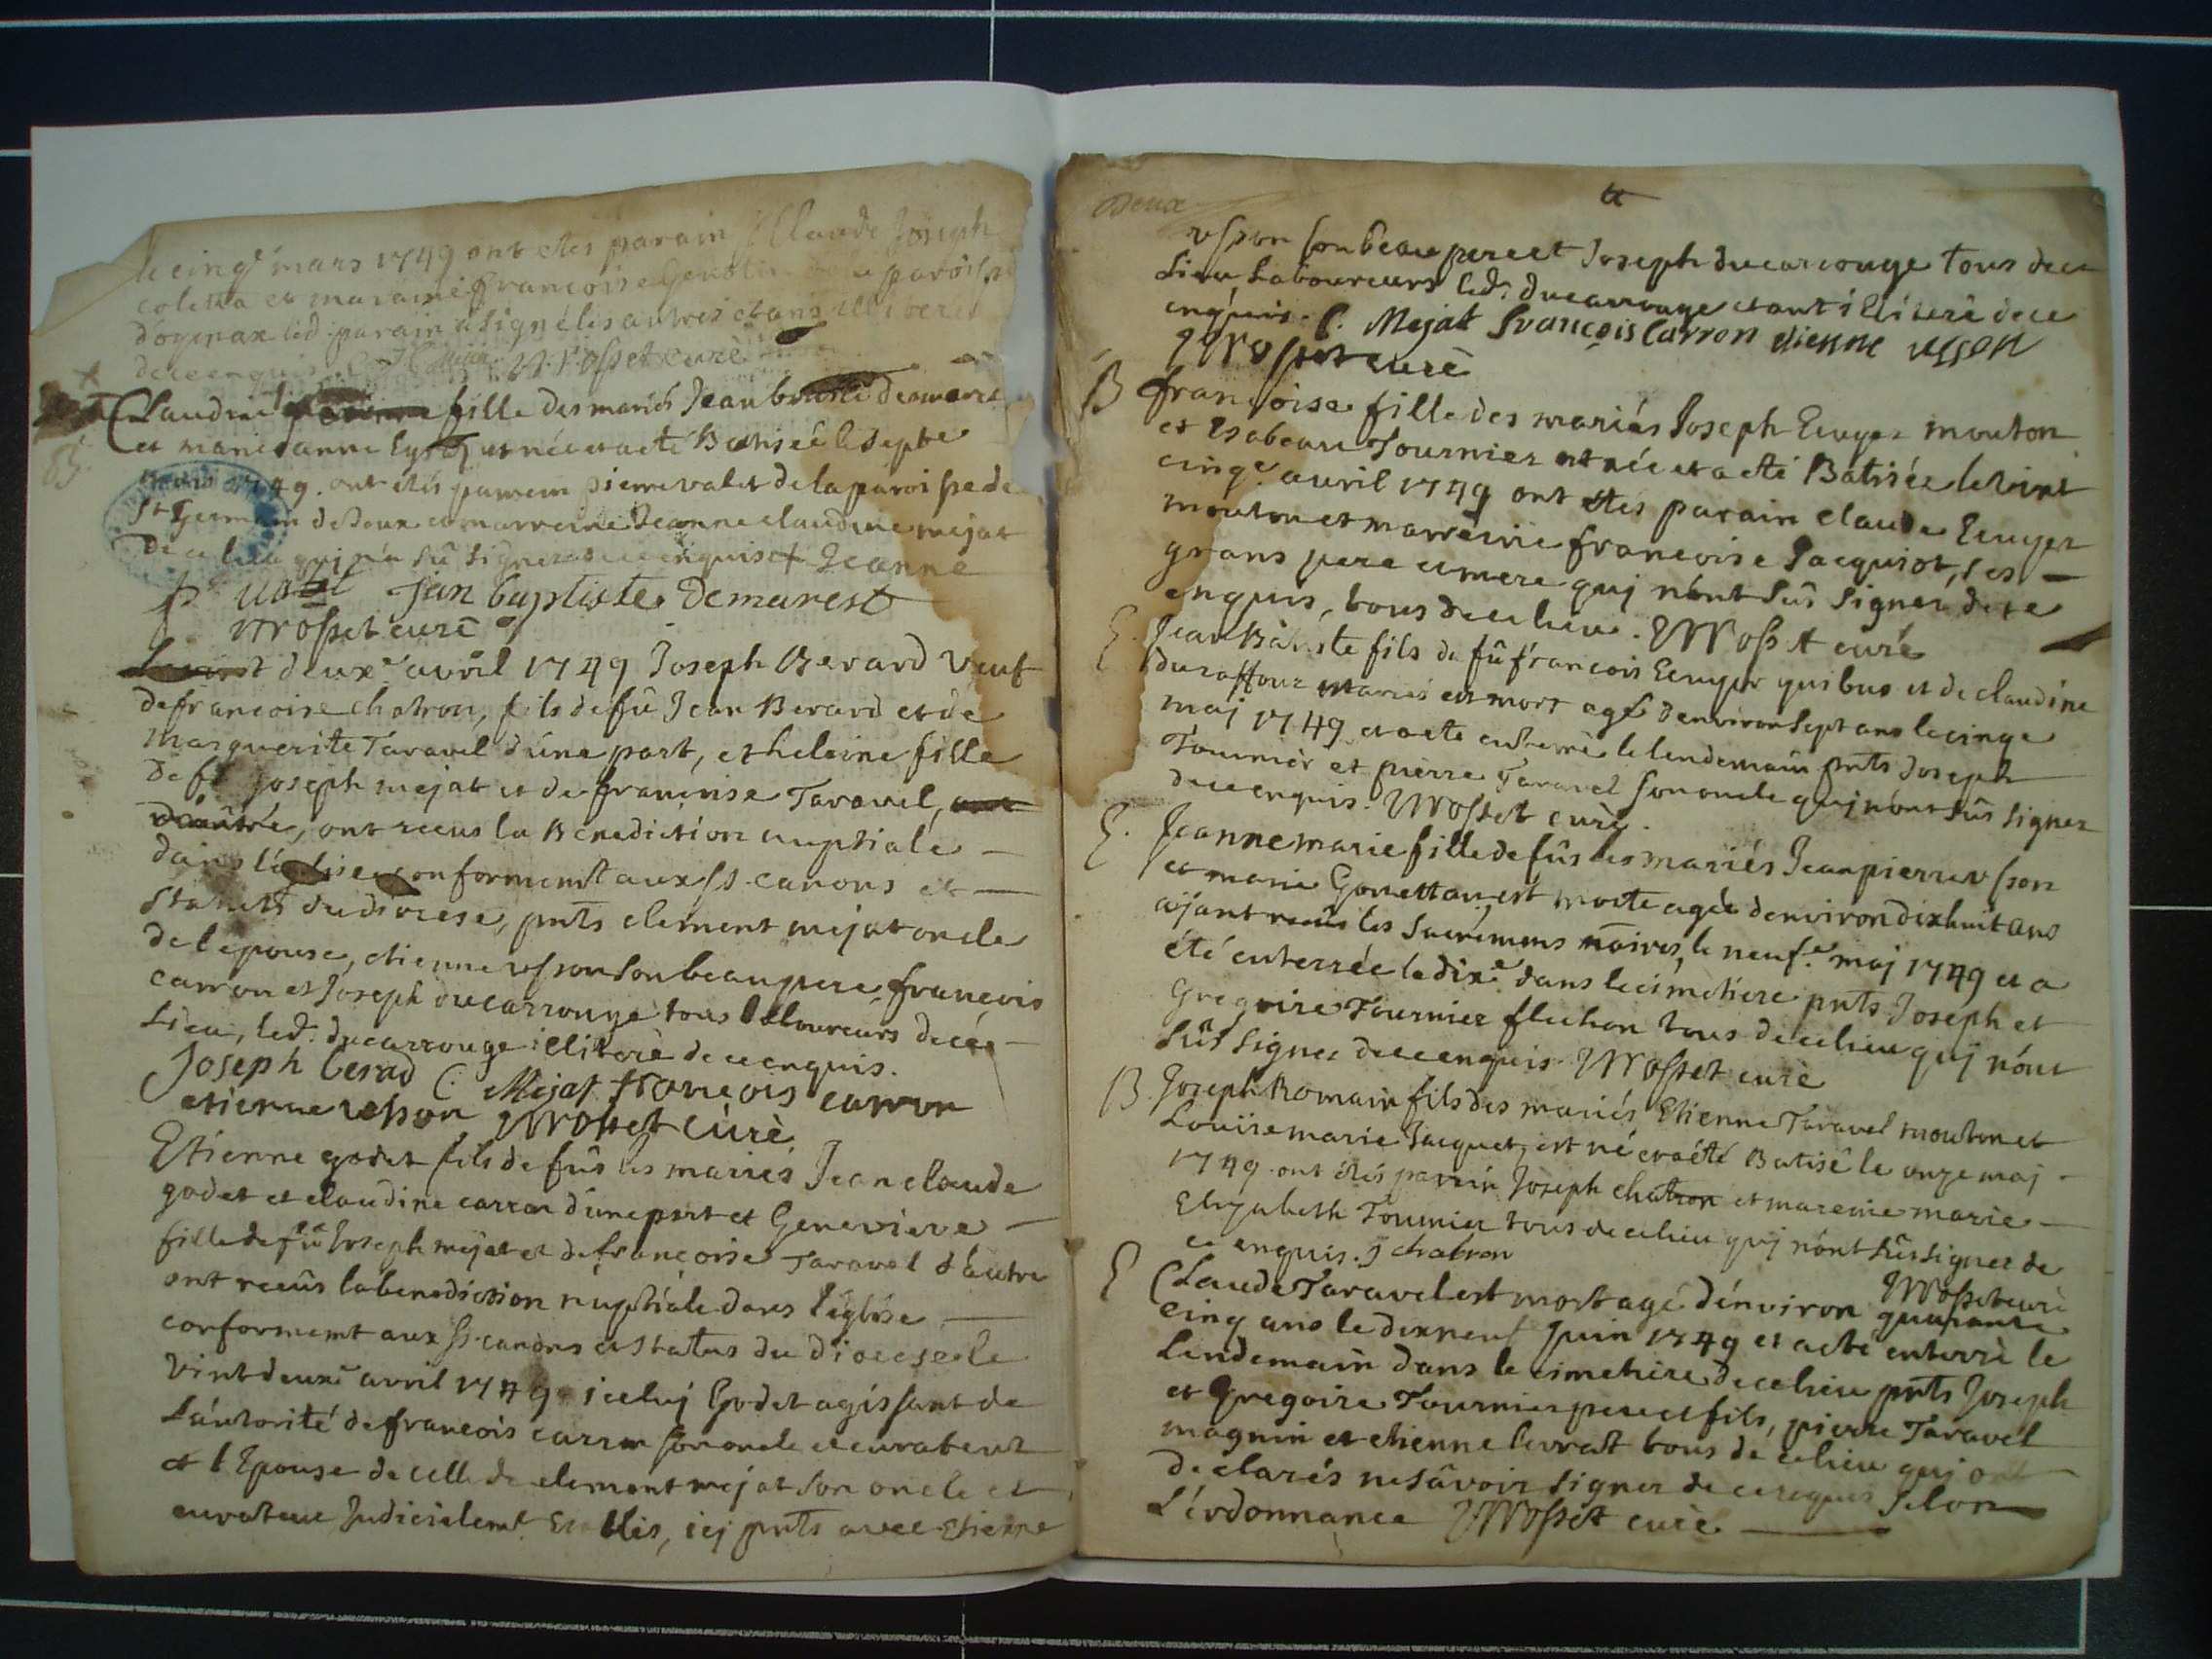 le cinqe mars 1749 ont etes parain Claude Joseph
coletta et maraine francoise Genolin paroisse
d'oyenax led. parain a signé les autres etans illiteres
de ce enquis Rosset curé
Claudine fille des mariés Jean batiste demarest
et marie anne et née et a eté Batisée le septe
mars 1749. ont etés parrein pierre valet de la paroisse de
St Germain de Joux et marreine Jeanne claudine mejat
de ce lieu qui n'a sû signer de ce enquise Jeanne
p. valet Jan baptiste Demarest
Rosset curé
Le vint deuxe avril 1749 Joseph Berard veuf
de francoise chatron, fils de fû Jean Berard et de
Marguerite Taravel d'une part, et heleine fille
de fû Joseph mejat et de francoise Taravel,
d'autre, ont receus la Benediction nuptiale
dans l'eglise conformemt aux ss. canons et
Statuts du diocese, pnts clement mejat oncle
de l'epouse, etienne usson son beaupere, francois
carron et Joseph ducarrouge tous laboureurs de ce
Lieu, led. ducarrouge illiteré de ce enquis.
Joseph berad C. Mejat francois carron
etienne usson Rosset curé
Etienne godet fils de fûs les mariés Jean claude
godet et claudine carron d'une part et Genevieve
fille de fû Joseph mejat et de francoise Taravel d'autre
ont receûs la benediction nuptiale dans l'eglise
conformemt aux ss. canons et statuts du diocese le
vint deuxe avril 1749. iceluj Godet agissant de
L'autorité de francois carron son oncle et curateur
et l'Epouse de celle de clement mejat son oncle et
curateur Judicielemt Etablis, icj pnts avec Etienne
Deux
usson son beaupere et Joseph ducarouge tous de ce
Lieu, Laboureurs led. ducarrouge etant illiteré de ce
enquis. C. Mejat francois Carron etienne usson
Rosset curé
B francoise fille des mariés Joseph Ecuyer mouton
et Isabeau Tournier est née et a eté Batisée le vint
cinqe. avril 1749 ont etés parain claude Ecuyer
mouton et marreine francoise Jacquiot, ses
grans pere et mere quj n'ont sûs signer de ce
enquis, tous de ce lieu. Rosset curé
E. Jean Batiste fils de fû francois Ecuyer quibus et de claudine
duraffour mariés est mort agé d'environ sept ans le cinqe
maj 1749 et a eté enterré le lendemain pnts Joseph
Tournier et pierre Taravel son oncle quj n'ont sûs signer
de ce enquis. Rosset curé.
E. Jeanne marie fille de fûs les mariés Jean pierre usson
et marie Gonettan, est morte agée d'environ dix huit ans
ajant receûs les sacremens noires, le neufe. maj 1749 et a
été enterrée le dixe. dans le cimetiere pnts Joseph et
Gregoire Tournier fluchon tous de ce lieu quj n'ont
Sûs signer de ce enquis Rosset curé
B. Joseph Romain fils des mariés Etienne Taravel mouton et
Louise marie Jacquet, est né et a été Batisé le onze maj
1749. ont etés parrein Joseph chatron et mareine marie
Elizabeth Tournier tous de ce lieu quj n'ont sûs signer de
ce enquis. j chatron
Rosset curé
E Claude Taravel est mort agé d'environ quarante
cinq ans le dix neuf Juin 1749 et a eté enterré le
Lendemain dans le cimetiere de ce lieu pnts Joseph
et Gregoire Tournier pere et fils, pierre Taravel
magnin et etienne levrat tous de ce lieu quj ont
declarés ne sâvoir signer de ce requis selon
L'ordonnance Rosset curé